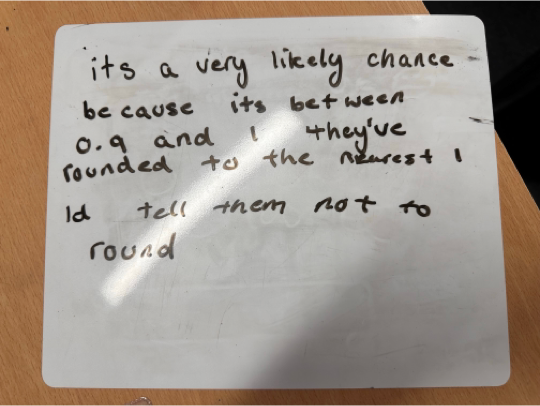 its a very likely chance
because its between
0.9 and 1 they've
rounded to the nearest 1
Id tell them not to
round